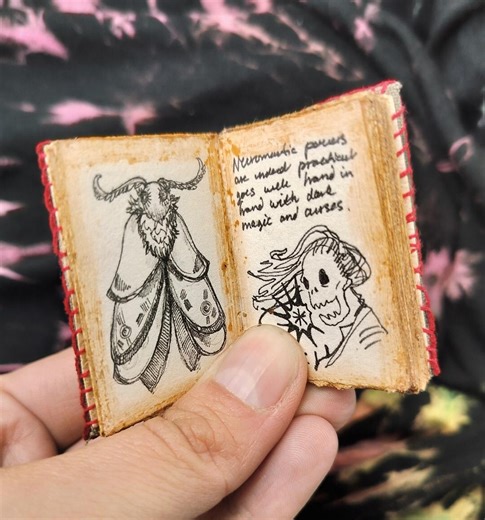 Necromantic powers
are indeed practical
goes well hand in
hand with dark
magic and curses.